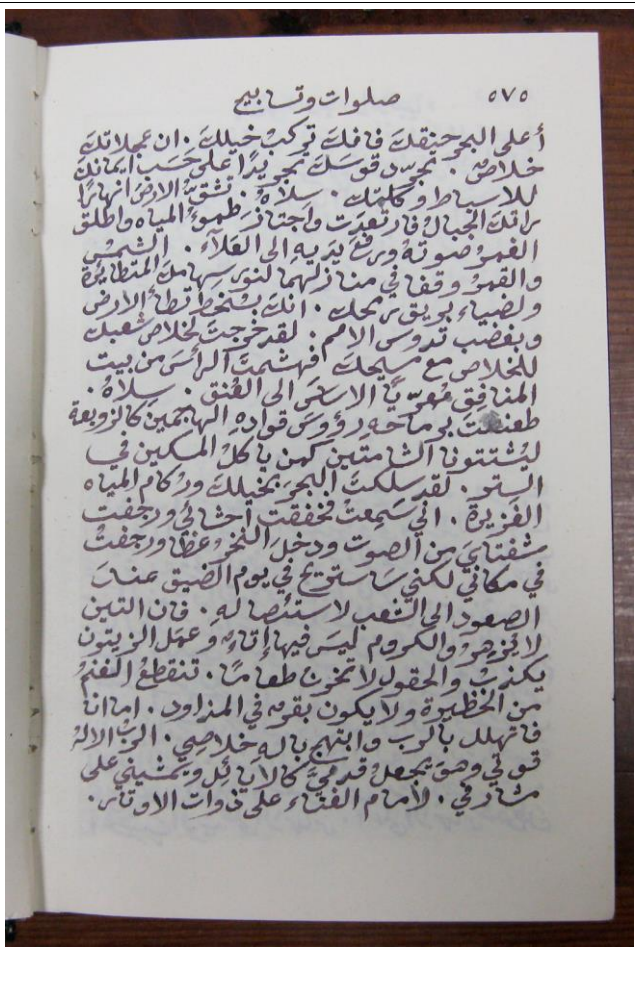 ٥٧٥ صلوات وتسابيح
أعلى البحر حنقك فانك تركب خيلك . ان عجلاتك
خلاصٌ . تجرّد قوسك تجريدًا على حَسَب ايمانك
للاسباط وكلمتك . سِلاهْ . تشقّ الارضَ انهارًا
راتك الجبالُ فارتعدَت واجتاز طموءُ المياه واطلق
الغمرُ صوتهُ ورفع يديهِ الى العَلآء . الشمس
والقمرُ وقفا في منازلهما لنور سِهامك المتطائرة
ولضياء بريق رمحك . انك بسُخط تطأ الارض
وبغضب تدوس الامم . لقد خرجتَ لخلاص شعبك
للخلاص مع مسيحك فهشمتَ الرأسَ من بيت
المنافق مُعرّيًا الاساسَ الى العُنق . سِلاهْ .
طعنتَ برماحهِ رؤوسَ قوادهِ الهاجمين كالزوبعة
ليُشتتونا الشامتين كمن ياكلُ المسكين في
الستر . لقد سلكتَ البحرَ بخيلك وركام المياه
الغزيرة . اني سَمِعتُ فخفقت احشائي ورجفت
شفتايَ من الصوت ودخلَ النخرُ عظاورجفتُ
في مكاني لكني ساستريح في يوم الضيق عندَ
الصعود الى الشعب لاستئصالهِ . فان التين
لا يُزهرُ والكروم ليسَ فيها إتاءٌ وعمَل الزيتون
يكذبُ والحقول لا تخرج طعامًا . تنقطعُ الغنمُ
من الحظيرة ولا يكون بقرٌ في المذاود . اما انا
فاتهلل بالرب وابتهج بالهِ خلاصي . الربُ الالهُ
قوتي وهو يجعلُ قدميَّ كالايائل ويمشيني على
مشارفي . لأمام الغناء على ذوات الاوتار .